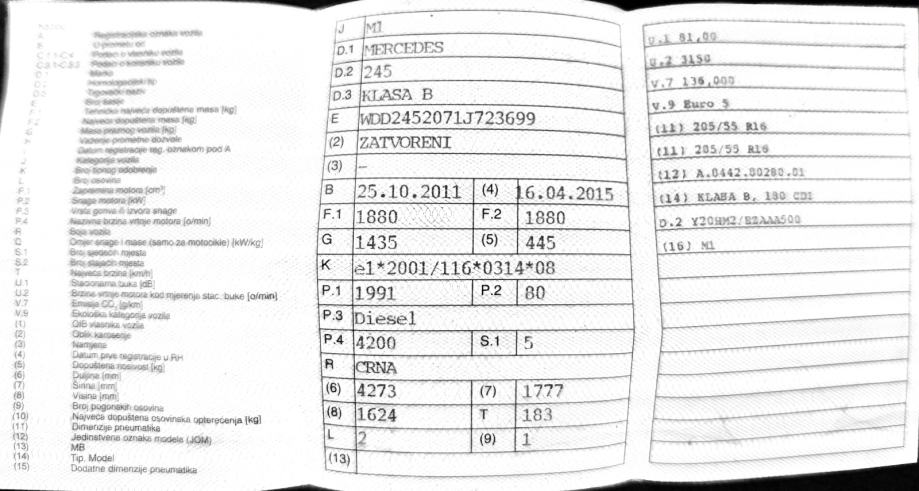 A Registracijska oznaka vozila
B U prometu od
C.1.1-C.4 Podaci o vlasniku vozila
C.3.1-C.3.3 Podaci o korisniku vozila
Marka
Homologacijski tip
Trgovački naziv
Broj šasije
Tehnički najveća dopuštena masa [kg]
Najveća dopuštena masa [kg]
Masa praznog vozila [kg]
Važenje prometne dozvole
Datum registracije reg. oznakom pod A
J Kategorija vozila
K Broj tipnog odobrenja
L Broj osovina
P.1 Zapremina motora [cm³]
P.2 Snaga motora [kW]
P.3 Vrsta goriva ili izvora snage
P.4 Nazivna brzina vrtnje motora [o/min]
R Boja vozila
Q Omjer snage i mase (samo za motocikle) [kW/kg]
S.1 Broj sjedećih mjesta
S.2 Broj stajaćih mjesta
T Najveća brzina [km/h]
U.1 Stacionarna buka [dB]
U.2 Brzina vrtnje motora kod mjerenja stac. buke [o/min]
V.7 Emisija CO₂ [g/km]
V.9 Ekološka kategorija vozila
(1) OIB vlasnika vozila
(2) Oblik karoserije
(3) Namjena
(4) Datum prve registracije u RH
(5) Dopuštena nosivost [kg]
(6) Duljina [mm]
(7) Širina [mm]
(8) Visina [mm]
(9) Broj pogonskih osovina
(10) Najveća dopuštena osovinska opterećenja [kg]
(11) Dimenzije pneumatika
(12) Jedinstvena oznaka modela (JOM)
(13) MB
(14) Tip, Model
(15) Dodatne dimenzije pneumatika
J M1
D.1 MERCEDES
D.2 245
D.3 KLASA B
E WDD2452071J723699
(2) ZATVORENI
(3) -
B 25.10.2011 (4) 16.04.2015
F.1 1880 F.2 1880
G 1435 (5) 445
K e1*2001/116*0314*08
P.1 1991 P.2 80
P.3 Diesel
P.4 4200 S.1 5
R CRNA
(6) 4273 (7) 1777
(8) 1624 T 183
L 2 (9) 1
(13)
U.1 81,00
U.2 3150
V.7 136,000
V.9 Euro 5
(11) 205/55 R16
(11) 205/55 R16
(12) A.0442.00280.01
(14) KLASA B, 180 CDI
D.2 Y2OHM2/EZAAA500
(16) M1